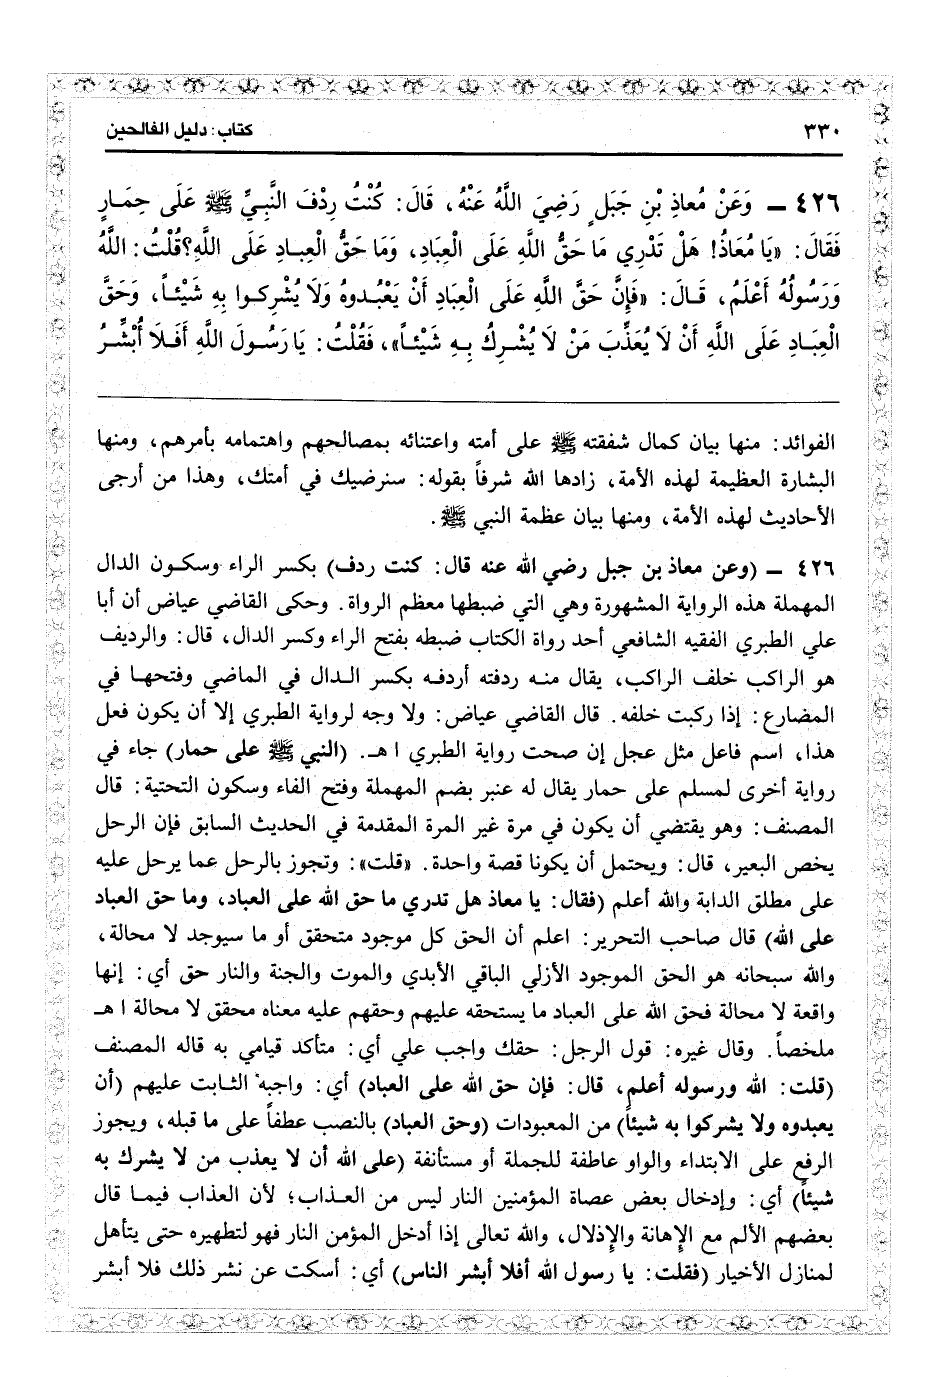 ٣٣٠
كتاب: دليل الفالحين
٤٢٦ ـ وَعَنْ مُعاذِ بْنِ جَبَلٍ رَضِيَ اللَّهُ عَنْهُ، قَالَ: كُنْتُ رِدْفَ النَّبِيِّ ﷺ عَلَى حِمَارٍ
فَقَالَ: «يَا مُعَاذُ! هَلْ تَدْرِي مَا حَقُّ اللَّهِ عَلَى الْعِبَادِ، وَمَا حَقُّ الْعِبادِ عَلَى اللَّهِ؟قُلْتُ: اللَّهُ
وَرَسُولُهُ أَعْلَمُ، قَالَ: «فَإِنَّ حَقَّ اللَّهِ عَلَى الْعِبَادِ أَنْ يَعْبُدوهُ وَلَا يُشْرِكوا بِهِ شَيْئاً، وَحَقَّ
الْعِبَادِ عَلَى اللَّهِ أَنْ لَا يُعَذِّبَ مَنْ لَا يُشْرِكُ بِهِ شَيْئاً»، فَقُلْتُ: يَا رَسُولَ اللَّهِ أَفَلَا أُبَشِّرُ
الفوائد: منها بيان كمال شفقته ﷺ على أمته واعتنائه بمصالحهم واهتمامه بأمرهم، ومنها
البشارة العظيمة لهذه الأمة، زادها الله شرفاً بقوله: سنرضيك في أمتك، وهذا من أرجى
الأحاديث لهذه الأمة، ومنها بيان عظمة النبي ﷺ.
٤٢٦ ـ (وعن معاذ بن جبل رضي الله عنه قال: كنت ردف) بكسر الراء وسكون الدال
المهملة هذه الرواية المشهورة وهي التي ضبطها معظم الرواة. وحكى القاضي عياض أن أبا
علي الطبري الفقيه الشافعي أحد رواة الكتاب ضبطه بفتح الراء وكسر الدال، قال: والرديف
هو الراكب خلف الراكب، يقال منه ردفته أردفه بكسر الدال في الماضي وفتحها في
المضارع: إذا ركبت خلفه. قال القاضي عياض: ولا وجه لرواية الطبري إلا أن يكون فعل
هذا، اسم فاعل مثل عجل إن صحت رواية الطبري ا هـ. (النبي ﷺ على حمار) جاء في
رواية أخرى لمسلم على حمار يقال له عنبر بضم المهملة وفتح الفاء وسكون التحتية: قال
المصنف: وهو يقتضي أن يكون في مرة غير المرة المقدمة في الحديث السابق فإن الرحل
يخص البعير، قال: ويحتمل أن يكونا قصة واحدة. «قلت»: وتجوز بالرحل عما يرحل عليه
على مطلق الدابة والله أعلم (فقال: يا معاذ هل تدري ما حق الله على العباد، وما حق العباد
على الله) قال صاحب التحرير: اعلم أن الحق كل موجود متحقق أو ما سيوجد لا محالة،
والله سبحانه هو الحق الموجود الأزلي الباقي الأبدي والموت والجنة والنار حق أي: إنها
واقعة لا محالة فحق الله على العباد ما يستحقه عليهم وحقهم عليه معناه محقق لا محالة ا هـ
ملخصاً. وقال غيره: قول الرجل: حقك واجب علي أي: متأكد قيامي به قاله المصنف
(قلت: الله ورسوله أعلم، قال: فإن حق الله على العباد) أي: واجبه الثابت عليهم (أن
يعبدوه ولا يشركوا به شيئاً) من المعبودات (وحق العباد) بالنصب عطفاً على ما قبله، ويجوز
الرفع على الابتداء والواو عاطفة للجملة أو مستأنفة (على الله أن لا يعذب من لا يشرك به
شيئاً) أي: وإدخال بعض عصاة المؤمنين النار ليس من العذاب؛ لأن العذاب فيما قال
بعضهم الألم مع الإهانة والإذلال، والله تعالى إذا أدخل المؤمن النار فهو لتطهيره حتى يتأهل
لمنازل الأخيار (فقلت: يا رسول الله أفلا أبشر الناس) أي: أسكت عن نشر ذلك فلا أبشر